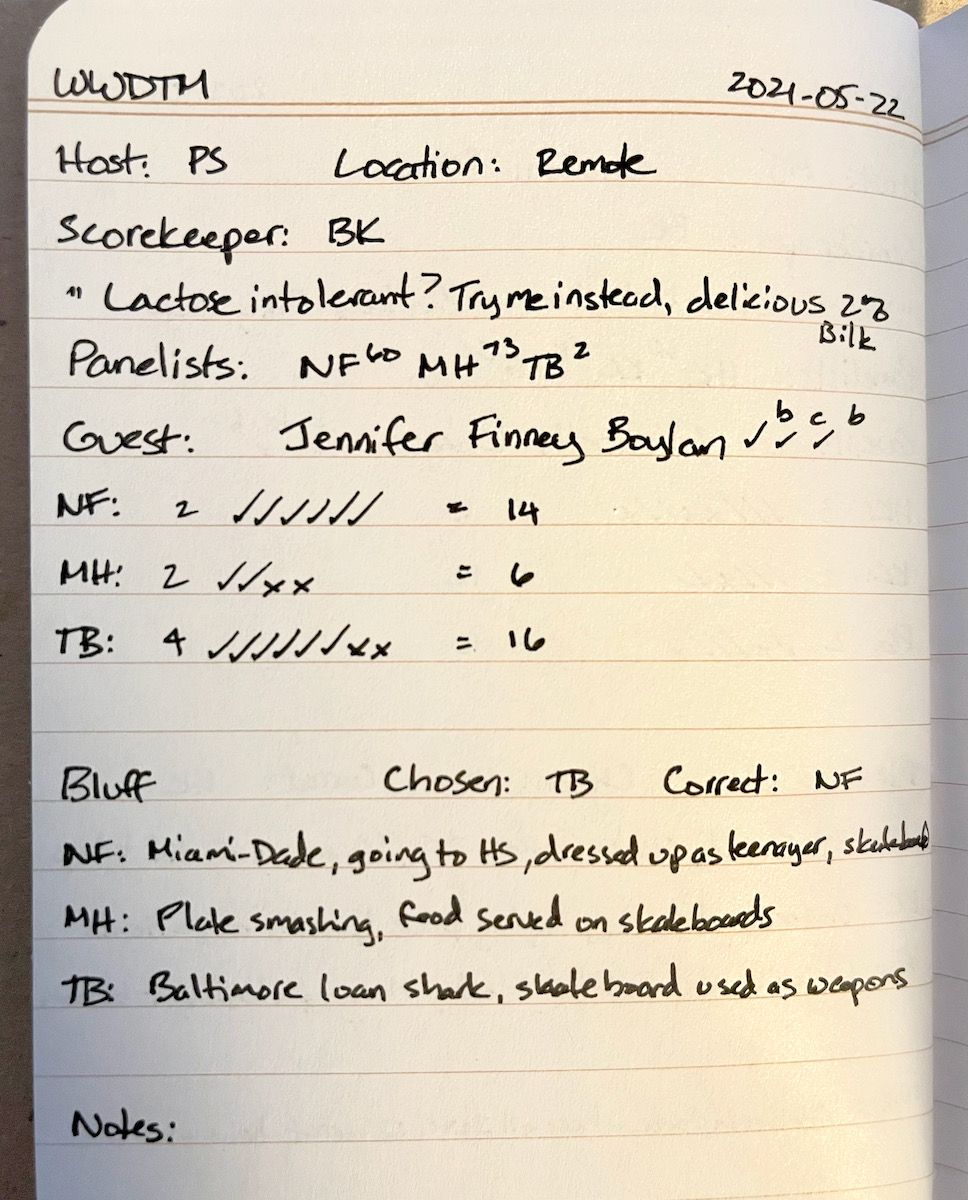 WWDTM 2021-05-22
Host: PS Location: Remote
Scorekeeper: BK
" Lactose intolerant? Try me instead, delicious 2%
Bilk
Panelists: NF 60 MH 73 TB 2
Guest: Jennifer Finney Boylan ✓ ✓b ✓c b
NF: 2 ✓✓✓✓✓✓ = 14
MH: 2 ✓✓xx = 6
TB: 4 ✓✓✓✓✓✓xx = 16
Bluff Chosen: TB Correct: NF
NF: Miami-Dade, going to HS, dressed up as teenager, skateboard
MH: Plate smashing, food served on skateboards
TB: Baltimore loan shark, skateboard used as weapons
Notes: